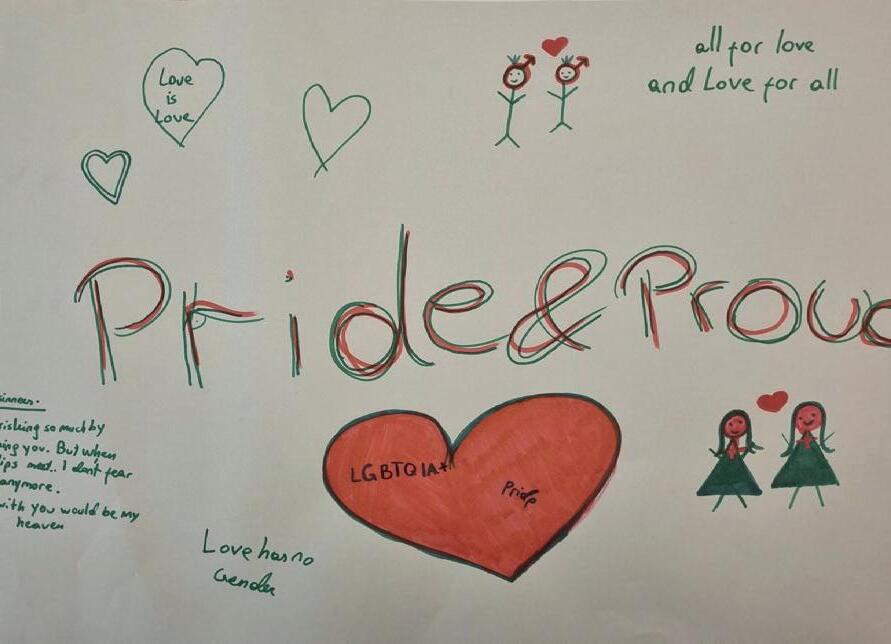 Love
is
Love
all for love
and Love for all
Pride & Prou
risking so much by
ing you. But when
lips meet.. I dont fear
anymore.
with you would be my
heaven
LGBTQIA+
Pride
Love has no
Gender